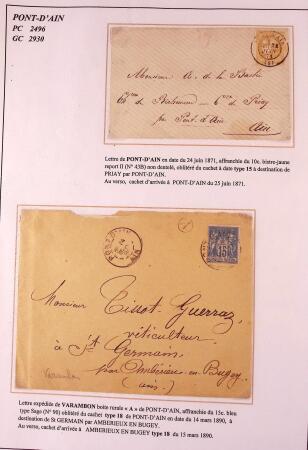 PONT-D'AIN
PC 2496
GC 2930
Monsieur A. de la
de Priay
par Pont-d'Ain
Ain
Lettre de PONT-D'AIN en date du 24 juin 1871, affranchie du 10c. bistre-jaune
report II (N° 43B) non dentelé, oblitéré du cachet à date type 15 à destination de
PRIAY par PONT-D'AIN.
Au verso, cachet d'arrivée à PONT-D'AIN du 25 juin 1871.
15
Monsieur Tissot-Guerraz,
viticulteur
à St Germain
par Ambérieu en Bugey
(Ain)
Varambon
Lettre expédiée de VARAMBON boite rurale « A » de PONT-D'AIN, affranchie du 15c. bleu
type Sage (N° 90) oblitéré du cachet type 18 de PONT-D'AIN en date du 14 mars 1890, à
destination de St GERMAIN par AMBERIEUX EN BUGEY.
Au verso, cachet d'arrivée à AMBERIEUX EN BUGEY type 18 du 15 mars 1890.